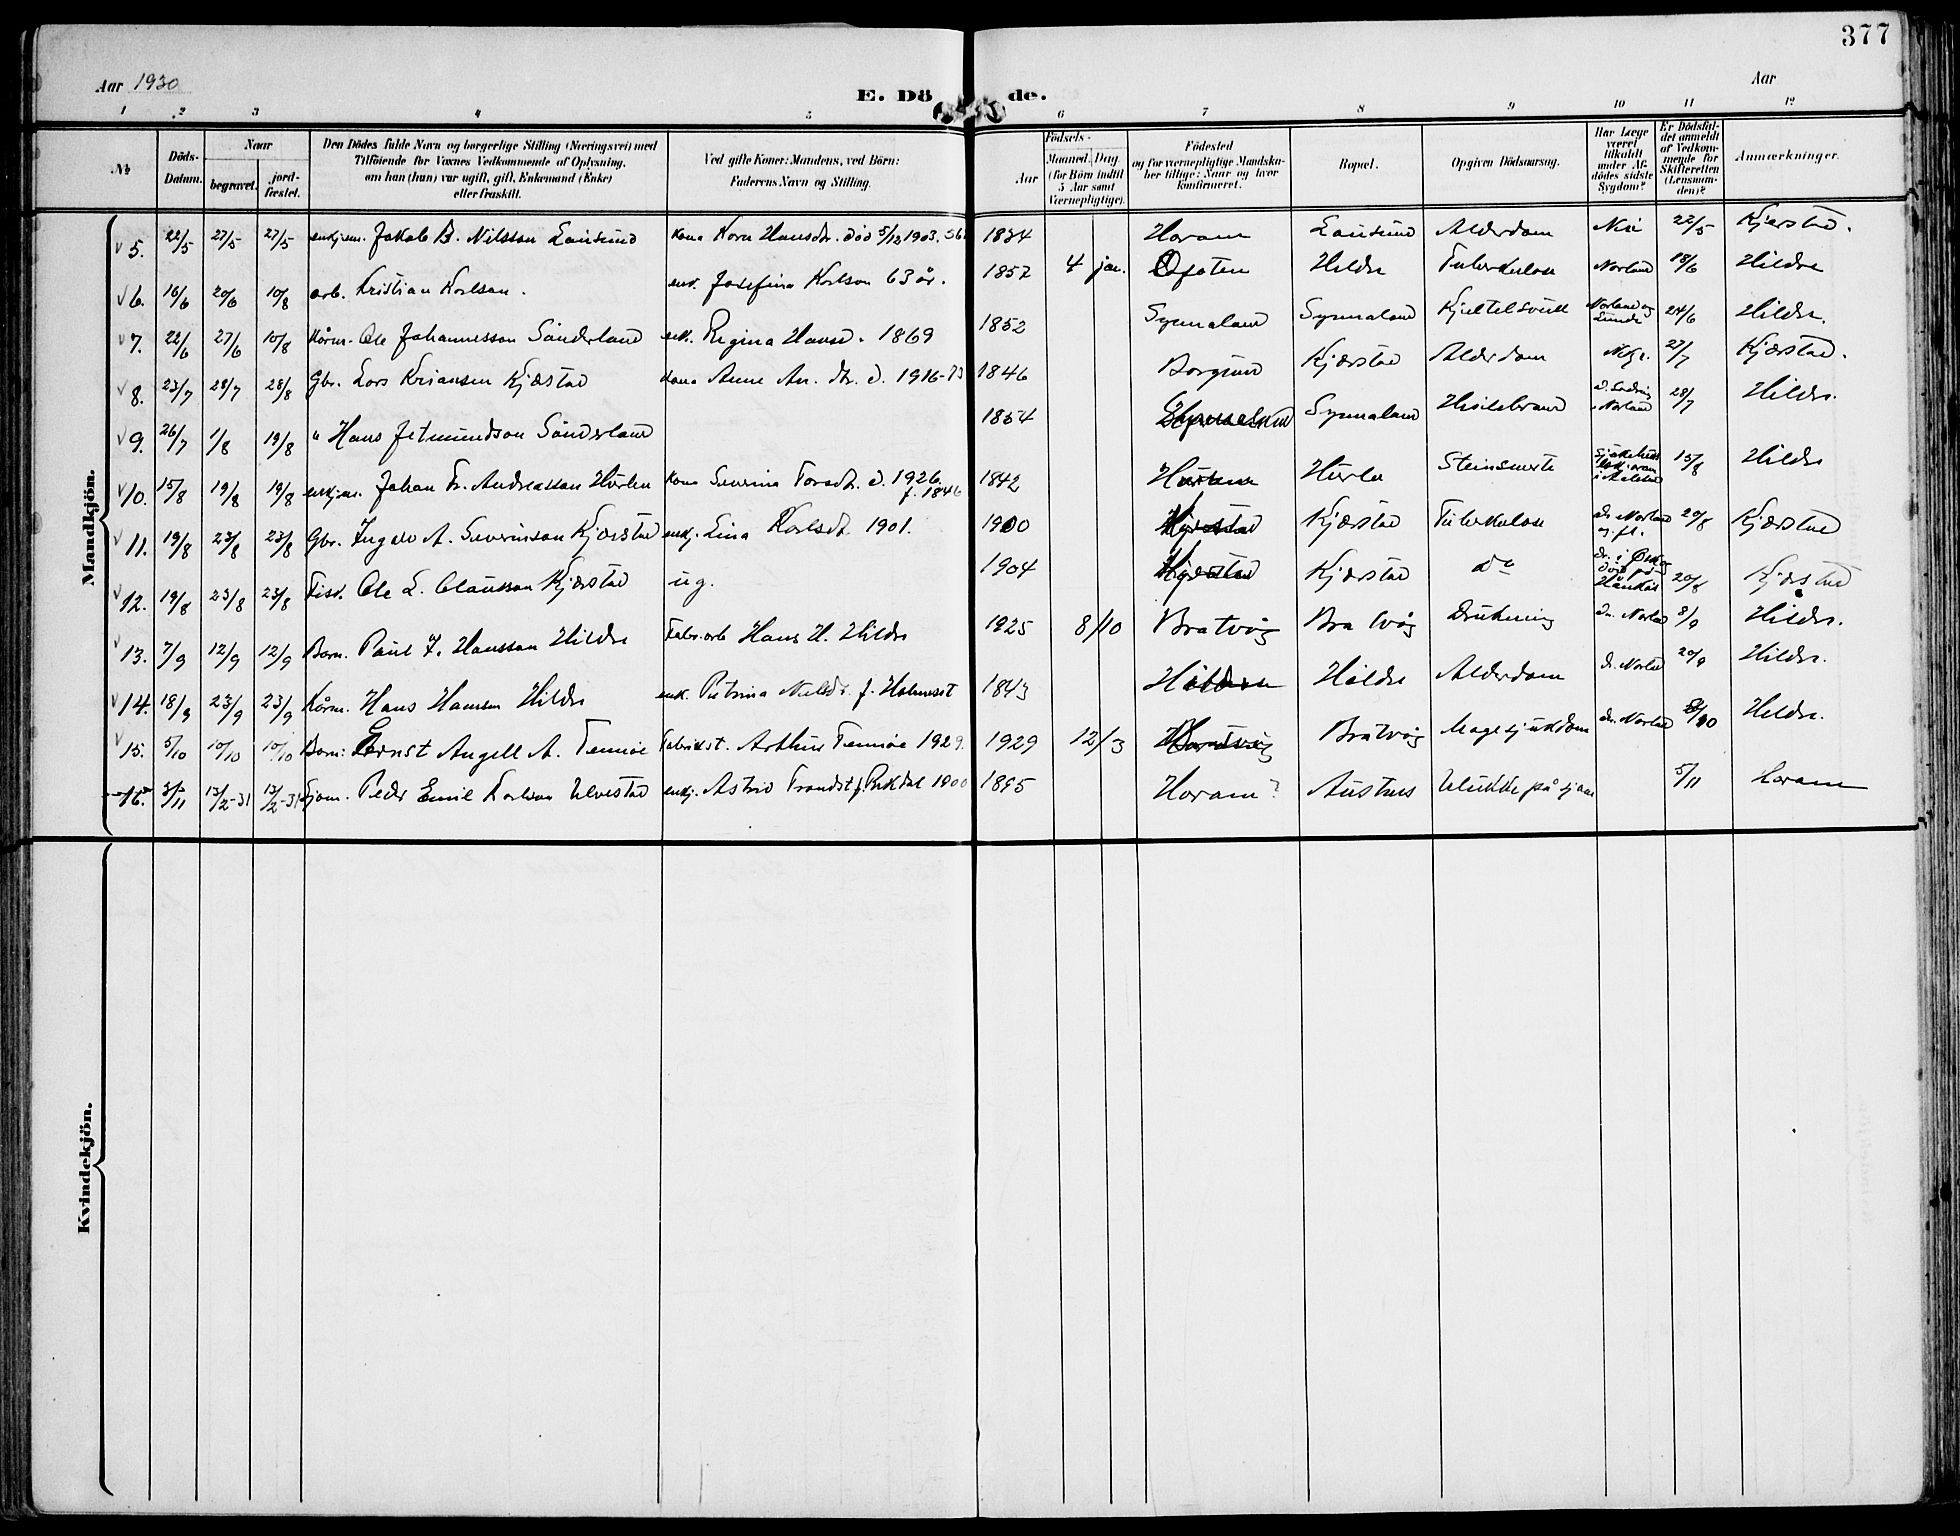 377
Aar 1930
E. Dö de.
Aar
1 2 3 4 5 6 7 8 9 10 11 12
No
Döds-Datum.
Naar
begravet.
jord-fæstet.
Den Dödes fulde Navn og borgerlige Stilling (Næringsvei) med
Tilföiende for Voxnes Vedkommende af Oplysning,
om han (hun) var ugift, gift, Enkemand (Enke)
eller fraskilt.
Ved gifte Koner: Mandens, ved Börn:
Faderens Navn og Stilling.
Aar
Födsels-
Maaned. Dag
(for Börn indtil
5 Aar samt
Værnepligtige).
Födested
og for værnepligtige Mandska-
ber tillige: Naar og hvor
konfirmeret.
Bopæl.
Opgiven Dödsaarsag.
Har Læge
været
tilkaldt
under Af-
dödes sidste
Sygdom?
Er Dödsfal-
det anmeldt
af Vedkom-
mende for
Skifteretten
(Lensman-
den)?
Anmærkninger.
Mandkjön.
5. 22/5 27/5 27/5 enkjem. Jakob B. Nilsson Lausund Kona Korn Hansdt. död 5/12 1903. 1834 Haram Lausund Alderdom Nei 22/5 Kjerstad.
6. 16/6 20/6 10/8 arb. Kristian Karlson. enk. Josefina Karlson 63 år. 1857 4 jan. Ofoten Hildre Tuberkulose Norland 18/6 Hildre
7. 22/6 27/6 10/8 Kårm. Ole Johannesson Sönderland enk. Regina Hansd. 1869 1852 Synnaland Synnaland Norland og Lunde 24/6 Hildre.
8. 23/7 28/7 28/8 Gbr. Lars Kjæstad Kona Anne 1916 1846 Borgund Kjærstad Alderdom 27/7 Kjærstad.
9. 26/7 1/8 19/8 " Hans Jetmundson Sönderland 1854 Synnaland 28/7 Hildre.
10. 15/8 19/8 19/8 enkjm. Johan Fr. Andreasson Hurlen Kona Severina d. 1926. f. 1846 1842 Hurla 15/8 Hildre
11. 19/8 23/8 23/8 Gbr. Ingolv A. Severinson Kjærstad enkj. Lina Karlsdt. 1901. 1900 Kjærstad Kjærstad Tuberkulose dr. Norland og fl. 20/8 Kjærstad
12. 19/8 23/8 23/8 Fisk. Ole L. Clausson Kjærstad ug. 1904 Kjærstad Kjærstad do 20/8 Kjærstad
13. 7/9 12/9 12/9 Barn. Paul J. Hansson Hildre Fabr.arb Hans H. Hildre 1925 8/10 Bratvåg Bratvåg Drukning dr. Norland 8/9 Hildre.
14. 18/9 23/9 23/9 Kårm. Hans Hansen Hildre enk. Petrina 1843 Hildre Alderdom dr. Norland 20/9 Hildre.
15. 5/10 10/10 10/10 Barn: Ernst Angell A. Tennöe Fabrikst. Arthur Tennöe 1929. 1929 12/3 Bratvåg Magesjukdom dr. Norland 8/10 Hildre.
16. 3/11 13/2-31 13/2-31 Sjöm. Peder Emil Karlson Ulvestad enkj. Astrid 1900 1895 Haram? Austnes Ulukke på sjøen 5/11 Haram
Kvindekjön.